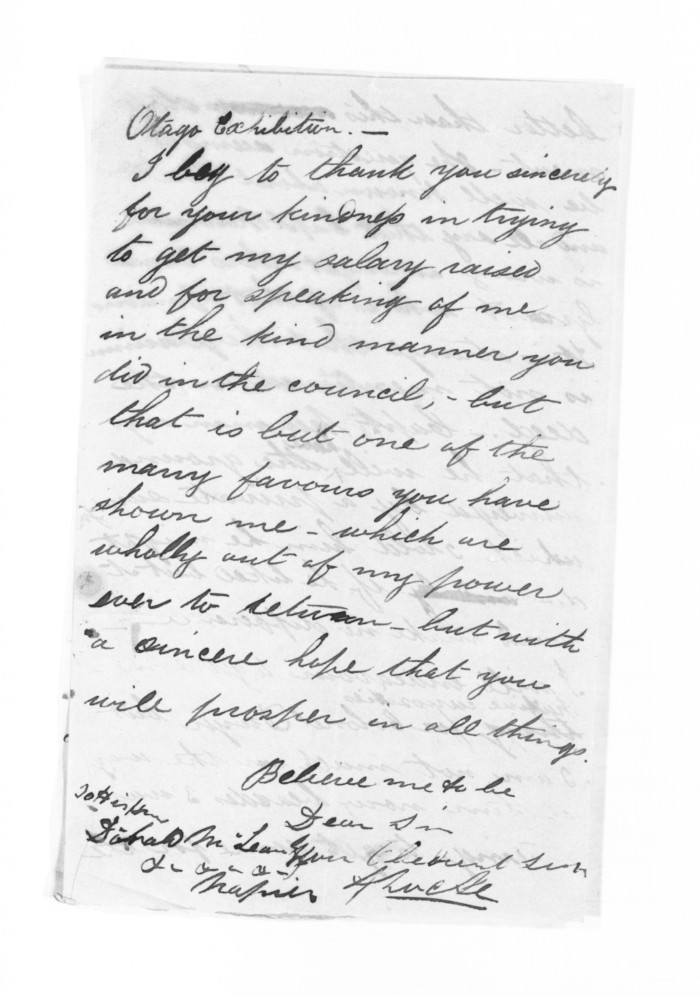 Otago Exhibition. —
I beg to thank you sincerely
for your kindness in trying
to get my salary raised
and for speaking of me
in the kind manner you
did in the council, - but
that is but one of the
many favours you have
shown me - which are
wholly out of my power
ever to return - but with
a sincere hope that you
will prosper in all things.
Believe me to be
Dear Sir
Your Obedient Servt
To His Honr
Donald McLean Esqr
Napier